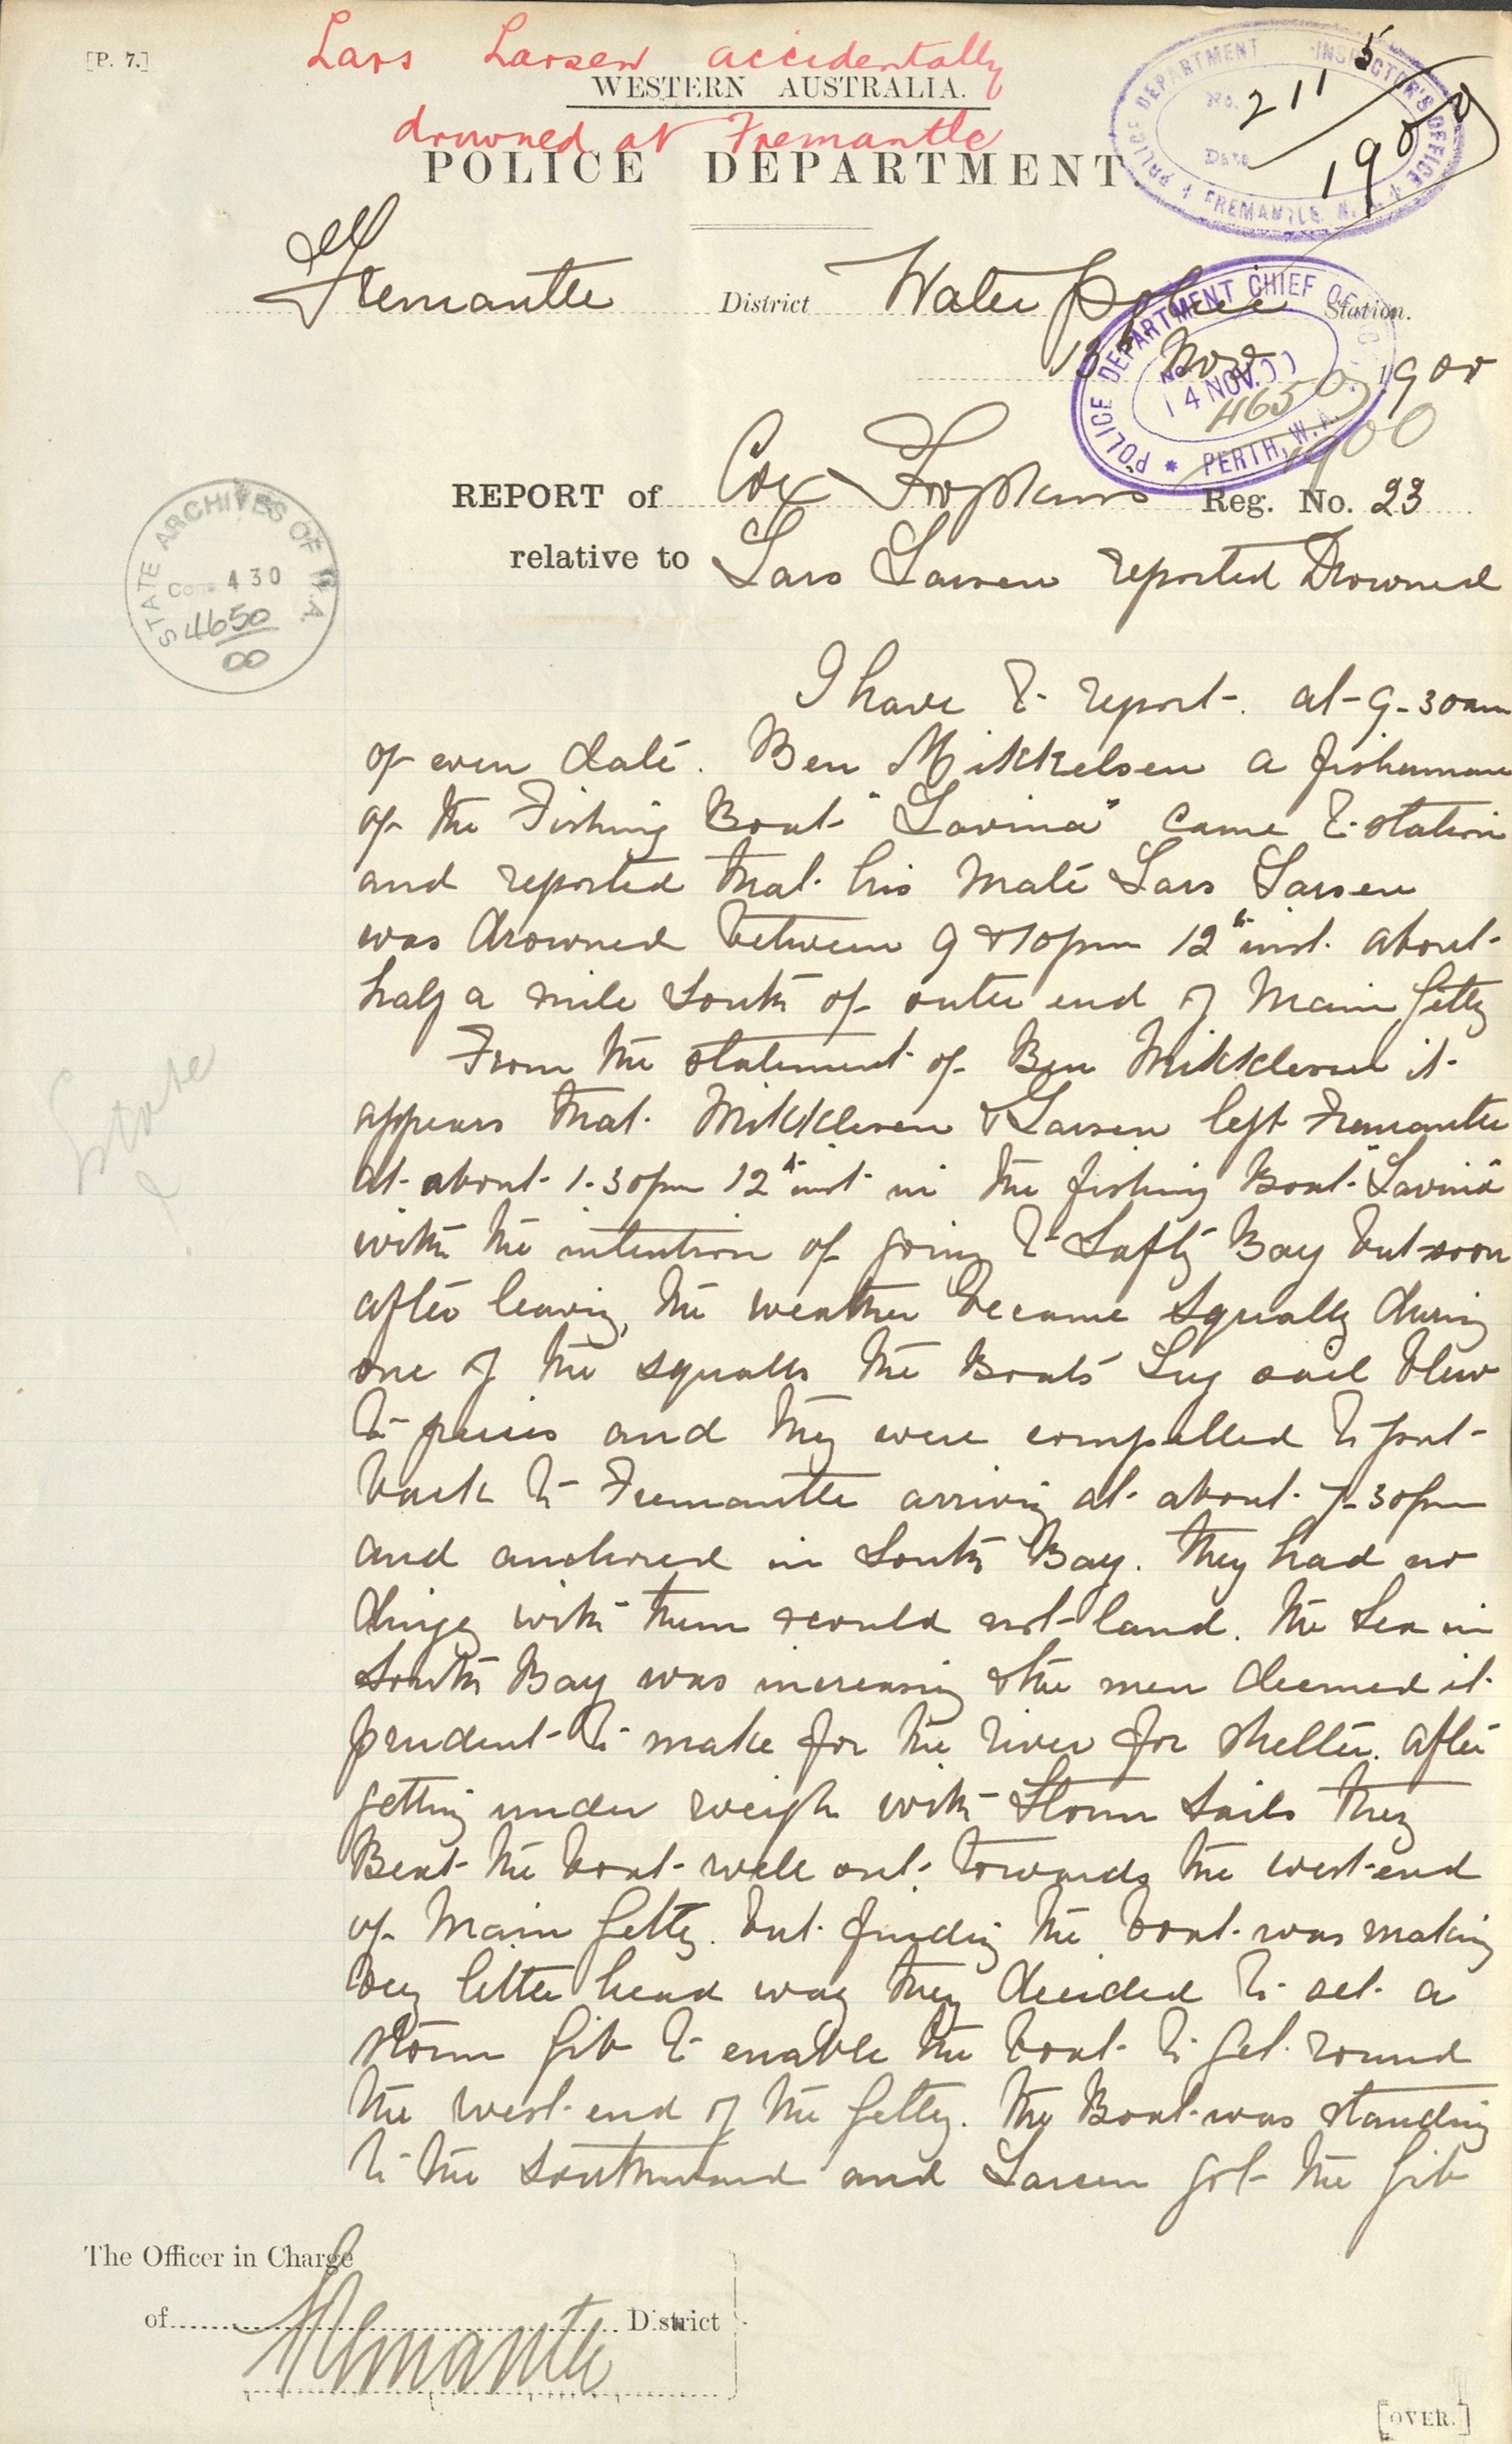 [P. 7.]
Lars Larsen accidentally
WESTERN AUSTRALIA.
drowned at Fremantle
POLICE DEPARTMENT
POLICE DEPARTMENT INSPECTOR'S OFFICE
No. 2115
Date 1900
FREMANTLE, W.A.
Fremantle District Water Police Station.
13th Nov 1900
POLICE DEPARTMENT CHIEF OFFICE
No.
14 NOV. 00
4650
1900
PERTH, W.A.
REPORT of Cox Hopkins Reg. No. 23
relative to Lars Larsen reported Drowned
STATE ARCHIVES OF W.A.
Cons 430
4650
00
I have to report. at 9-30am
of even date. Ben Mikkelsen a fisherman
of the Fishing Boat "Lavina" came to station
and reported that his mate Lars Larsen
was drowned between 9 & 10pm 12th inst. about
half a mile South of outer end of Main Jetty
From the statement of Ben Mikklesen it
appears that Mikklesen & Larsen left Fremantle
at about 1-30pm 12th inst in the fishing Boat "Lavina"
with the intention of going to Safty Bay but soon
after leaving, the weather became squally during
one of the squalls the Boats Lug sail blew
to pieces and they were compelled to put
back to Fremantle arriving at about 7-30pm
and anchored in South Bay. They had no
dingey with them & could not land. the Sea in
South Bay was increasing & the men deemed it
prudent to make for the river for shelter. after
getting under weigh with Storm Sails they
Beat the boat well out towards the west end
of Main Jetty. but finding the boat was making
very little head way they decided to set a
storm jib to enable the boat to get round
the west end of the Jetty. The Boat was standing
to the Southward and Larsen got the jib
The Officer in Charge
of Fremantle District
[OVER.]